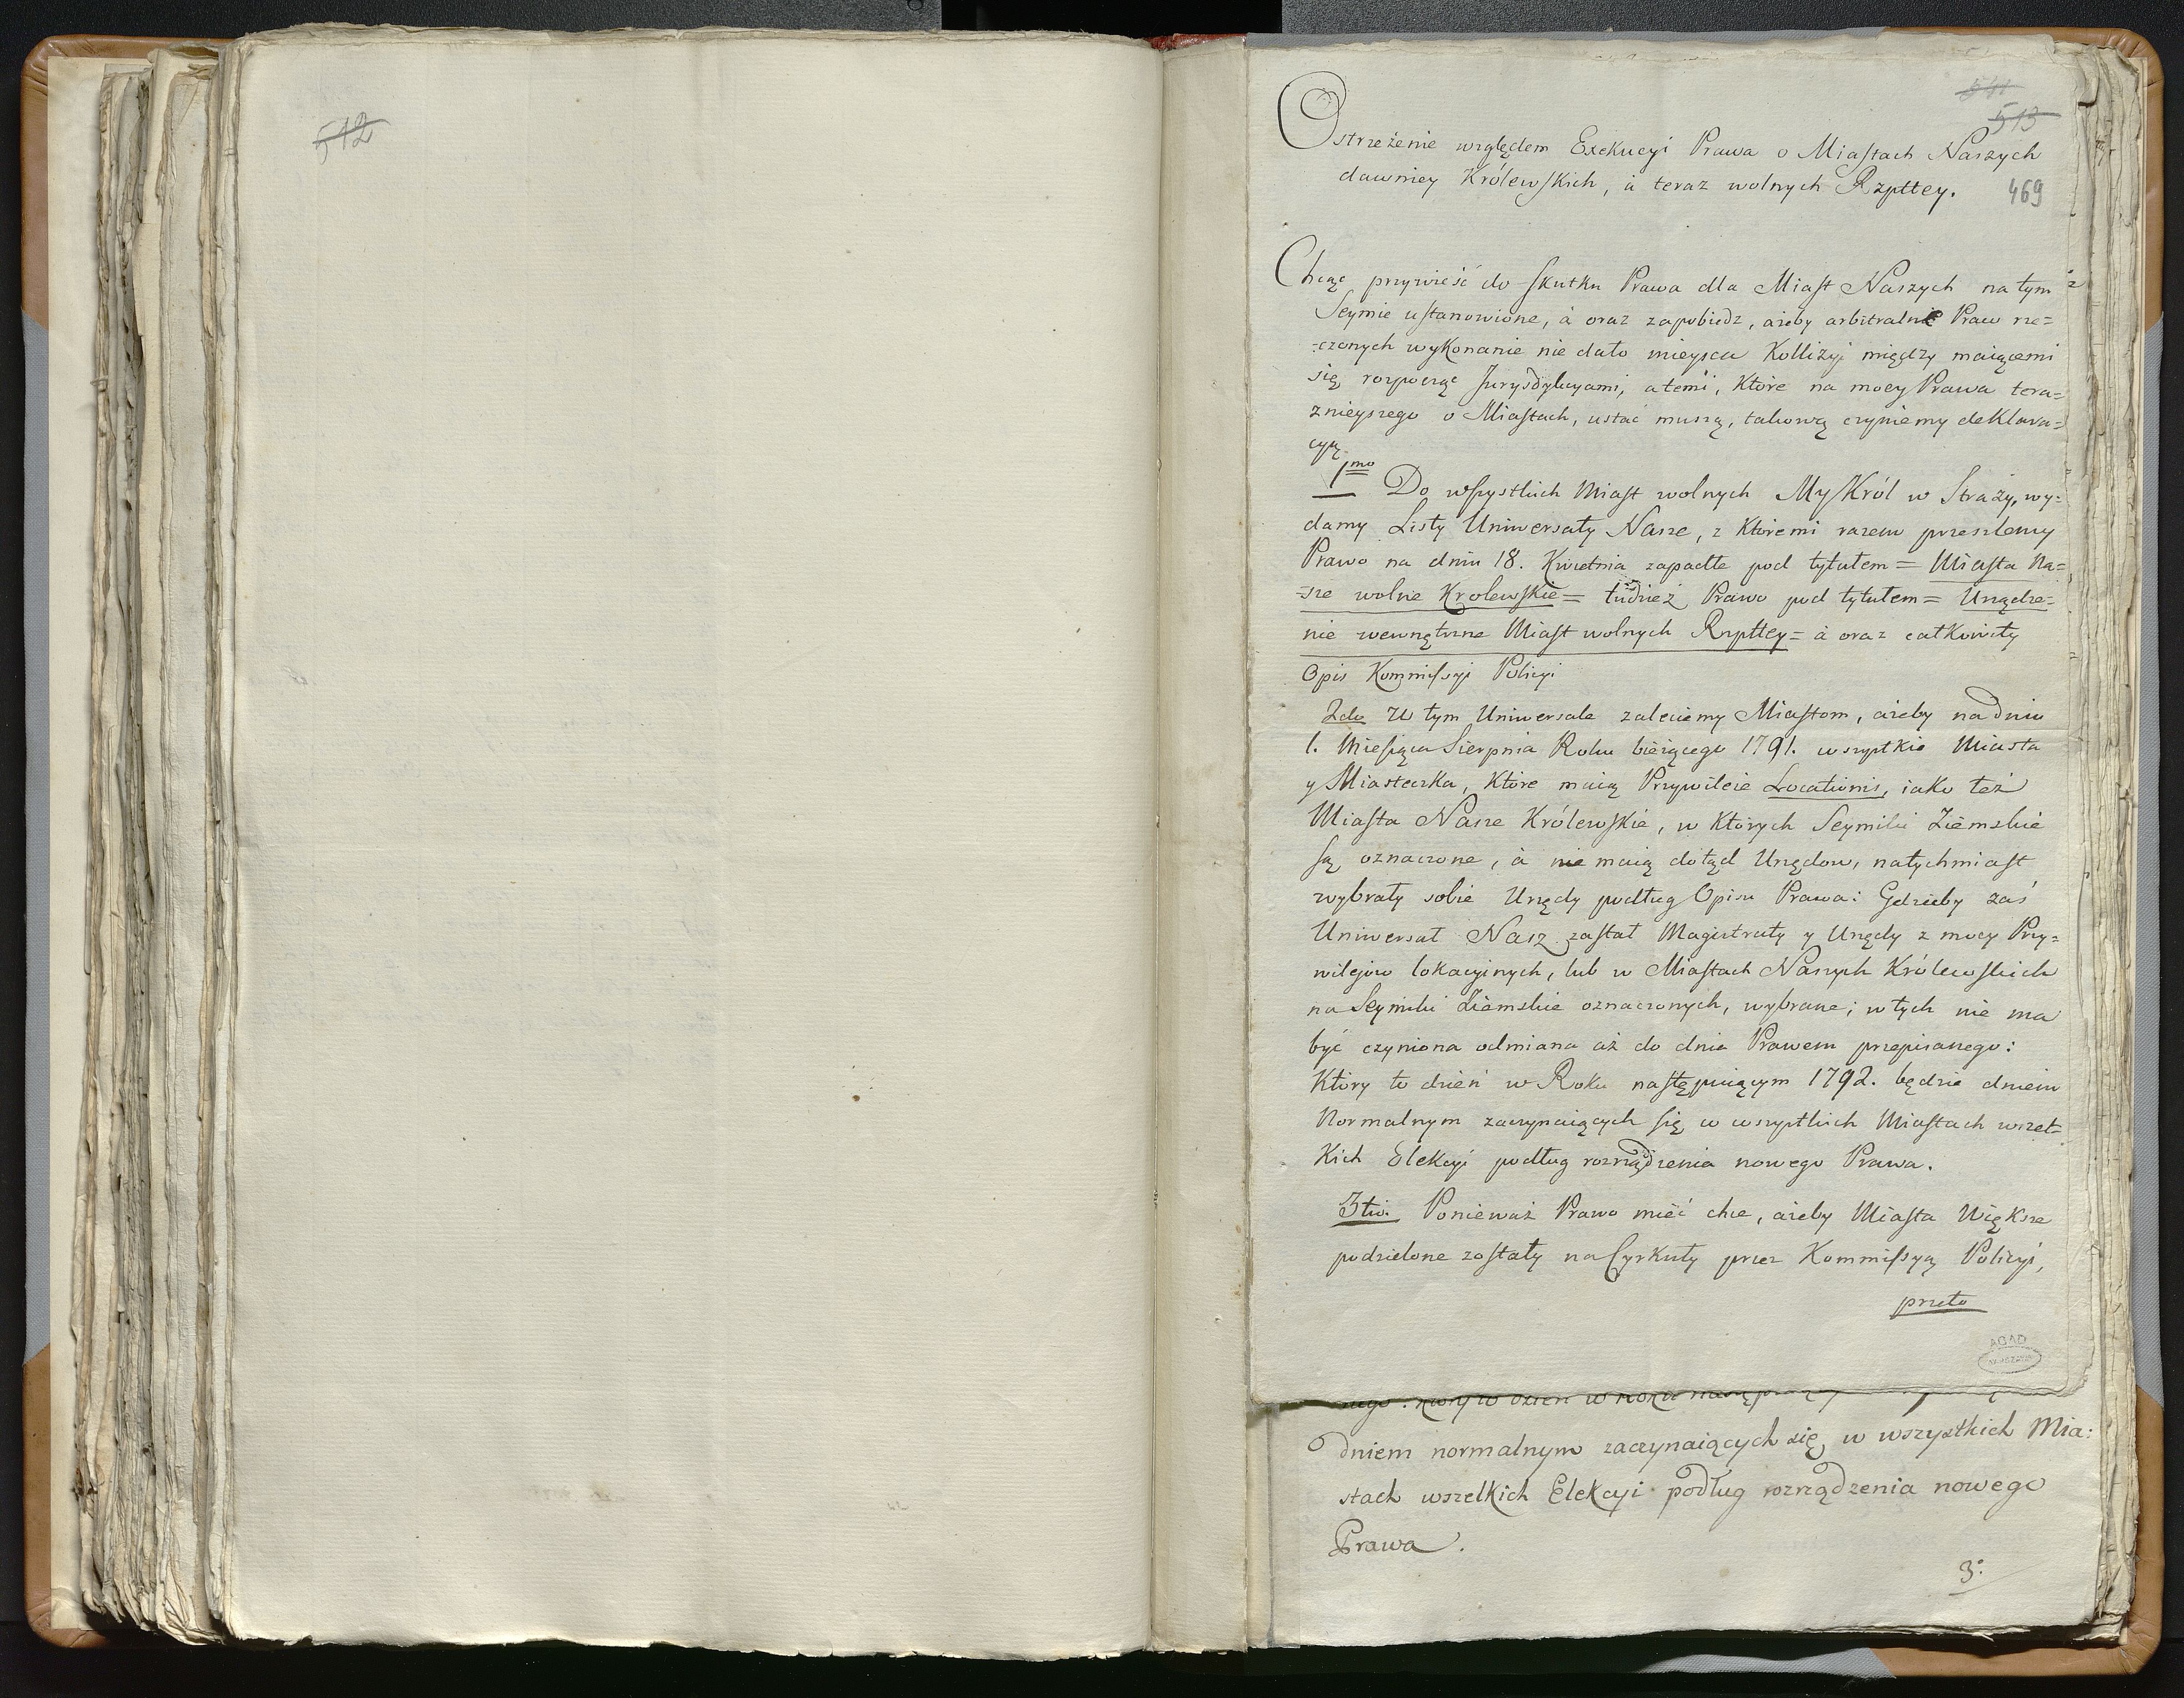 512
513
Ostrzeżenie względem Exekucyi Prawa o Miastach Naszych
dawniey Królewskich, à teraz wolnych Rzpttey.
469
Chcąc przywieść do skutku Prawa dla Miast Naszych na tym
Seymie ustanowione, à oraz zapobiedz, ażeby arbitralnie Praw rze=
=czonych wykonanie nie dało mieysca Kollizyi między maiącemi
się rozpocząć Jurysdykcyami, a temi, które na mocy Prawa tera=
znieyszego o Miastach, ustać muszą, takową czyniemy deklara=
cyą.
1mo Do wszystkich Miast wolnych My Król w Straży, wy=
damy Listy Uniwersały Nasze, z któremi razem przeszlemy
Prawo na dniu 18. Kwietnia zapadłe pod tytułem = Miasta Na=
=sze wolne Krolewskie = tudzież Prawo pod tytułem = Urządze=
nie wewnętrzne Miast wolnych Rzpttey = à oraz całkowity
Opis Kommissyi Policyi
2do W tym Uniwersale zaleciemy Miastom, ażeby na dniu
1. Miesiąca Sierpnia Roku bieżącego 1791. wszystkie Miasta
y Miasteczka, które maią Przywileie Locationis, iako też
Miasta Nasze Królewskie, w których Seymiki Ziemskie
są oznaczone, à nie maią dotąd Urzędow, natychmiast
wybrały sobie Urzędy podług Opisu Prawa: Gdzieby zaś
Uniwersał Nasz zastał Magistraty y Urzędy z mocy Przy=
wilejow lokacyinych, lub w Miastach Naszych Królewskich
na Seymiki Ziemskie oznaczonych, wybrane; w tych nie ma
być czyniona odmiana aż do dnia Prawem przepisanego:
Który to dzień w Roku następuiącym 1792. będzie dniem
Normalnym zaczynaiących się w wszystkich Miastach wszel=
kich Elekcyi podług rozrządzenia nowego Prawa.
3tio. Ponieważ Prawo mieć chce, ażeby Miasta Większe
podzielone zostały na Cyrkuły przez Kommissyą Policyi,
przeto
AGAD
dniem normalnym zaczynaiących się, w wszystkich Mia:
stach wszelkich Elekcyi podług rozrządzenia nowego
Prawa.
3: